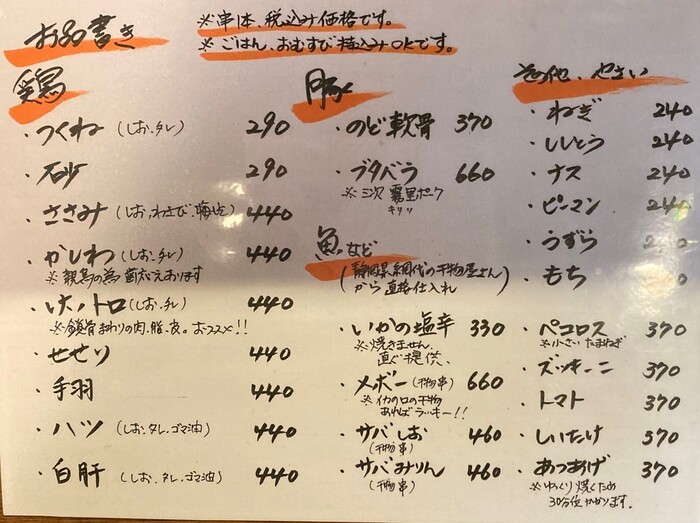 お品書き
※串1本、税込み価格です。
※ごはん、おむすび持込みOKです。
鶏
・つくね (しお、タレ) 290
・砂 290
・ささみ (しお、わさび、梅) 440
・かしわ (しお、タレ) 440
※親鳥の為歯ごたえあります
トロ (しお、タレ) 440
※鎖骨まわりの肉、脂、皮。おススメ!!
・せせり 440
・手羽 440
・ハツ (しお、タレ、ゴマ油) 440
・白肝 (しお、タレ、ゴマ油) 440
豚
・のど軟骨 370
・ブタバラ 660
※三次 霧里ポーク
キリリ
魚など
(静岡県網代の干物屋さん
から直接仕入れ)
・いかの塩辛 330
※焼きません。
直ぐ提供、
・メボー (干物串) 660
※イカの口の干物
あればラッキー!!
・サバしお 460
(干物串)
・サバみりん 460
(干物串)
その他、やさい
・ねぎ 240
・ししとう 240
・ナス 240
・ピーマン 240
・うずら
・もち
・ペコロス 370
※小さいたまねぎ
・ズッキーニ 370
・トマト 370
・しいたけ 570
・あつあげ 370
※ゆっくり焼くため
30分位かかります。